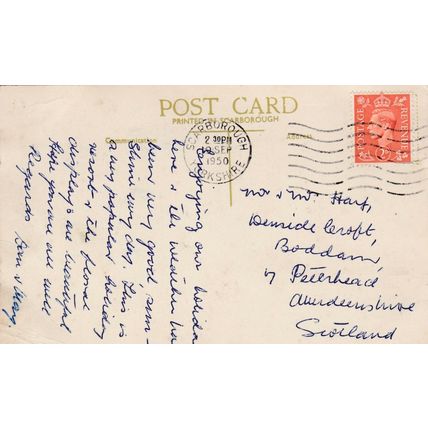 POST CARD
PRINTED IN SCARBOROUGH
Communication
Address
SCARBOROUGH
2 30PM
19 SEP
1950
YORKSHIRE
POSTAGE REVENUE
Enjoying our holiday
here & the weather has
been very good sun-
shine every day. This is
a very popular holiday
resort & the floral
displays are beautiful
Hope you are all well
Regards
Mr & Mrs Hay,
Croft,
Boddam,
Peterhead
Aberdeenshire
Scotland